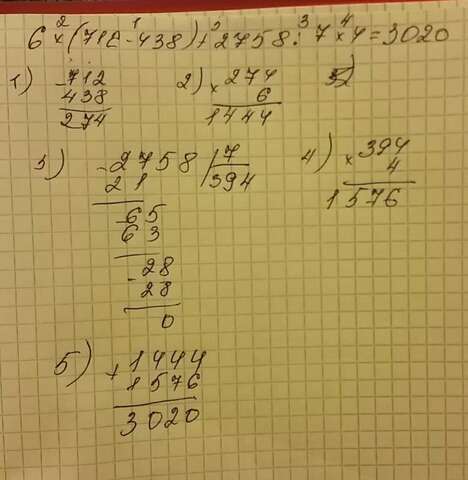 2 1 5 3 4
6 × (712 - 438) + 2758 : 7 × 4 = 3020
1) - 712
438
274
2) × 274
6
1444
3) - 2758 | 7
21 394
- 65
63
- 28
28
0
4) × 394
4
1576
5) + 1444
1576
3020